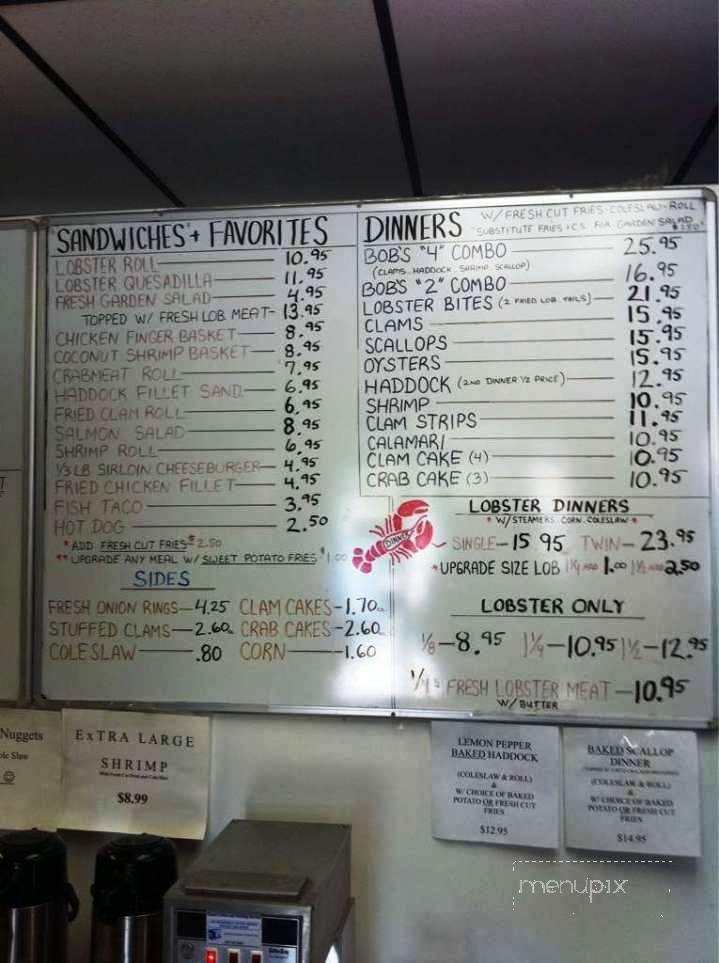 "SANDWICHES" + FAVORITES
LOBSTER ROLL 10.95
LOBSTER QUESADILLA 11.95
FRESH GARDEN SALAD 4.95
TOPPED W/ FRESH LOB. MEAT- 13.95
CHICKEN FINGER BASKET 8.95
COCONUT SHRIMP BASKET 8.95
CRABMEAT ROLL 7.95
HADDOCK FILLET SAND. 6.95
FRIED CLAM ROLL 6.95
SALMON SALAD 8.95
SHRIMP ROLL 6.95
1/3 LB SIRLOIN CHEESEBURGER 4.95
FRIED CHICKEN FILLET 4.95
FISH TACO 3.95
HOT DOG 2.50
* ADD FRESH CUT FRIES $2.50
** UPGRADE ANY MEAL W/ SWEET POTATO FRIES $1.00
SIDES
FRESH ONION RINGS 4.25 CLAM CAKES 1.70
STUFFED CLAMS 2.60 CRAB CAKES 2.60
COLESLAW .80 CORN 1.60
DINNERS W/ FRESH CUT FRIES COLESLAW ROLL
"SUBSTITUTE FRIES + C.S. FOR GARDEN SALAD
BOB'S "4" COMBO 25.95
(CLAMS. HADDOCK. SHRIMP. SCALLOP)
BOB'S "2" COMBO 16.95
LOBSTER BITES (2 FRIED LOB. TAILS) 21.95
CLAMS 15.95
SCALLOPS 15.95
OYSTERS 15.95
HADDOCK (2ND DINNER 1/2 PRICE) 12.95
SHRIMP 10.95
CLAM STRIPS 11.95
CALAMARI 10.95
CLAM CAKE (4) 10.95
CRAB CAKE (3) 10.95
LOBSTER DINNERS
* W/STEAMERS. CORN. COLESLAW *
DINNER
SINGLE- 15 95 TWIN- 23.95
*UPGRADE SIZE LOB 1 1/4 ADD 1.00 1 1/2 ADD 2.50
LOBSTER ONLY
1/8 - 8.95 1 1/4 - 10.95 1 1/2 - 12.95
FRESH LOBSTER MEAT - 10.95
W/ BUTTER
Nuggets
Slaw
ExTRA LARGE
SHRIMP
$8.99
LEMON PEPPER
BAKED HADDOCK
(COLESLAW & ROLL)
&
W/ CHOICE OF BAKED
POTATO OR FRESH CUT
FRIES
$12.95
BAKED SCALLOP
DINNER
(COLESLAW & ROLL)
&
W/ CHOICE OF BAKED
POTATO OR FRESH CUT
FRIES
$14.95
menupix